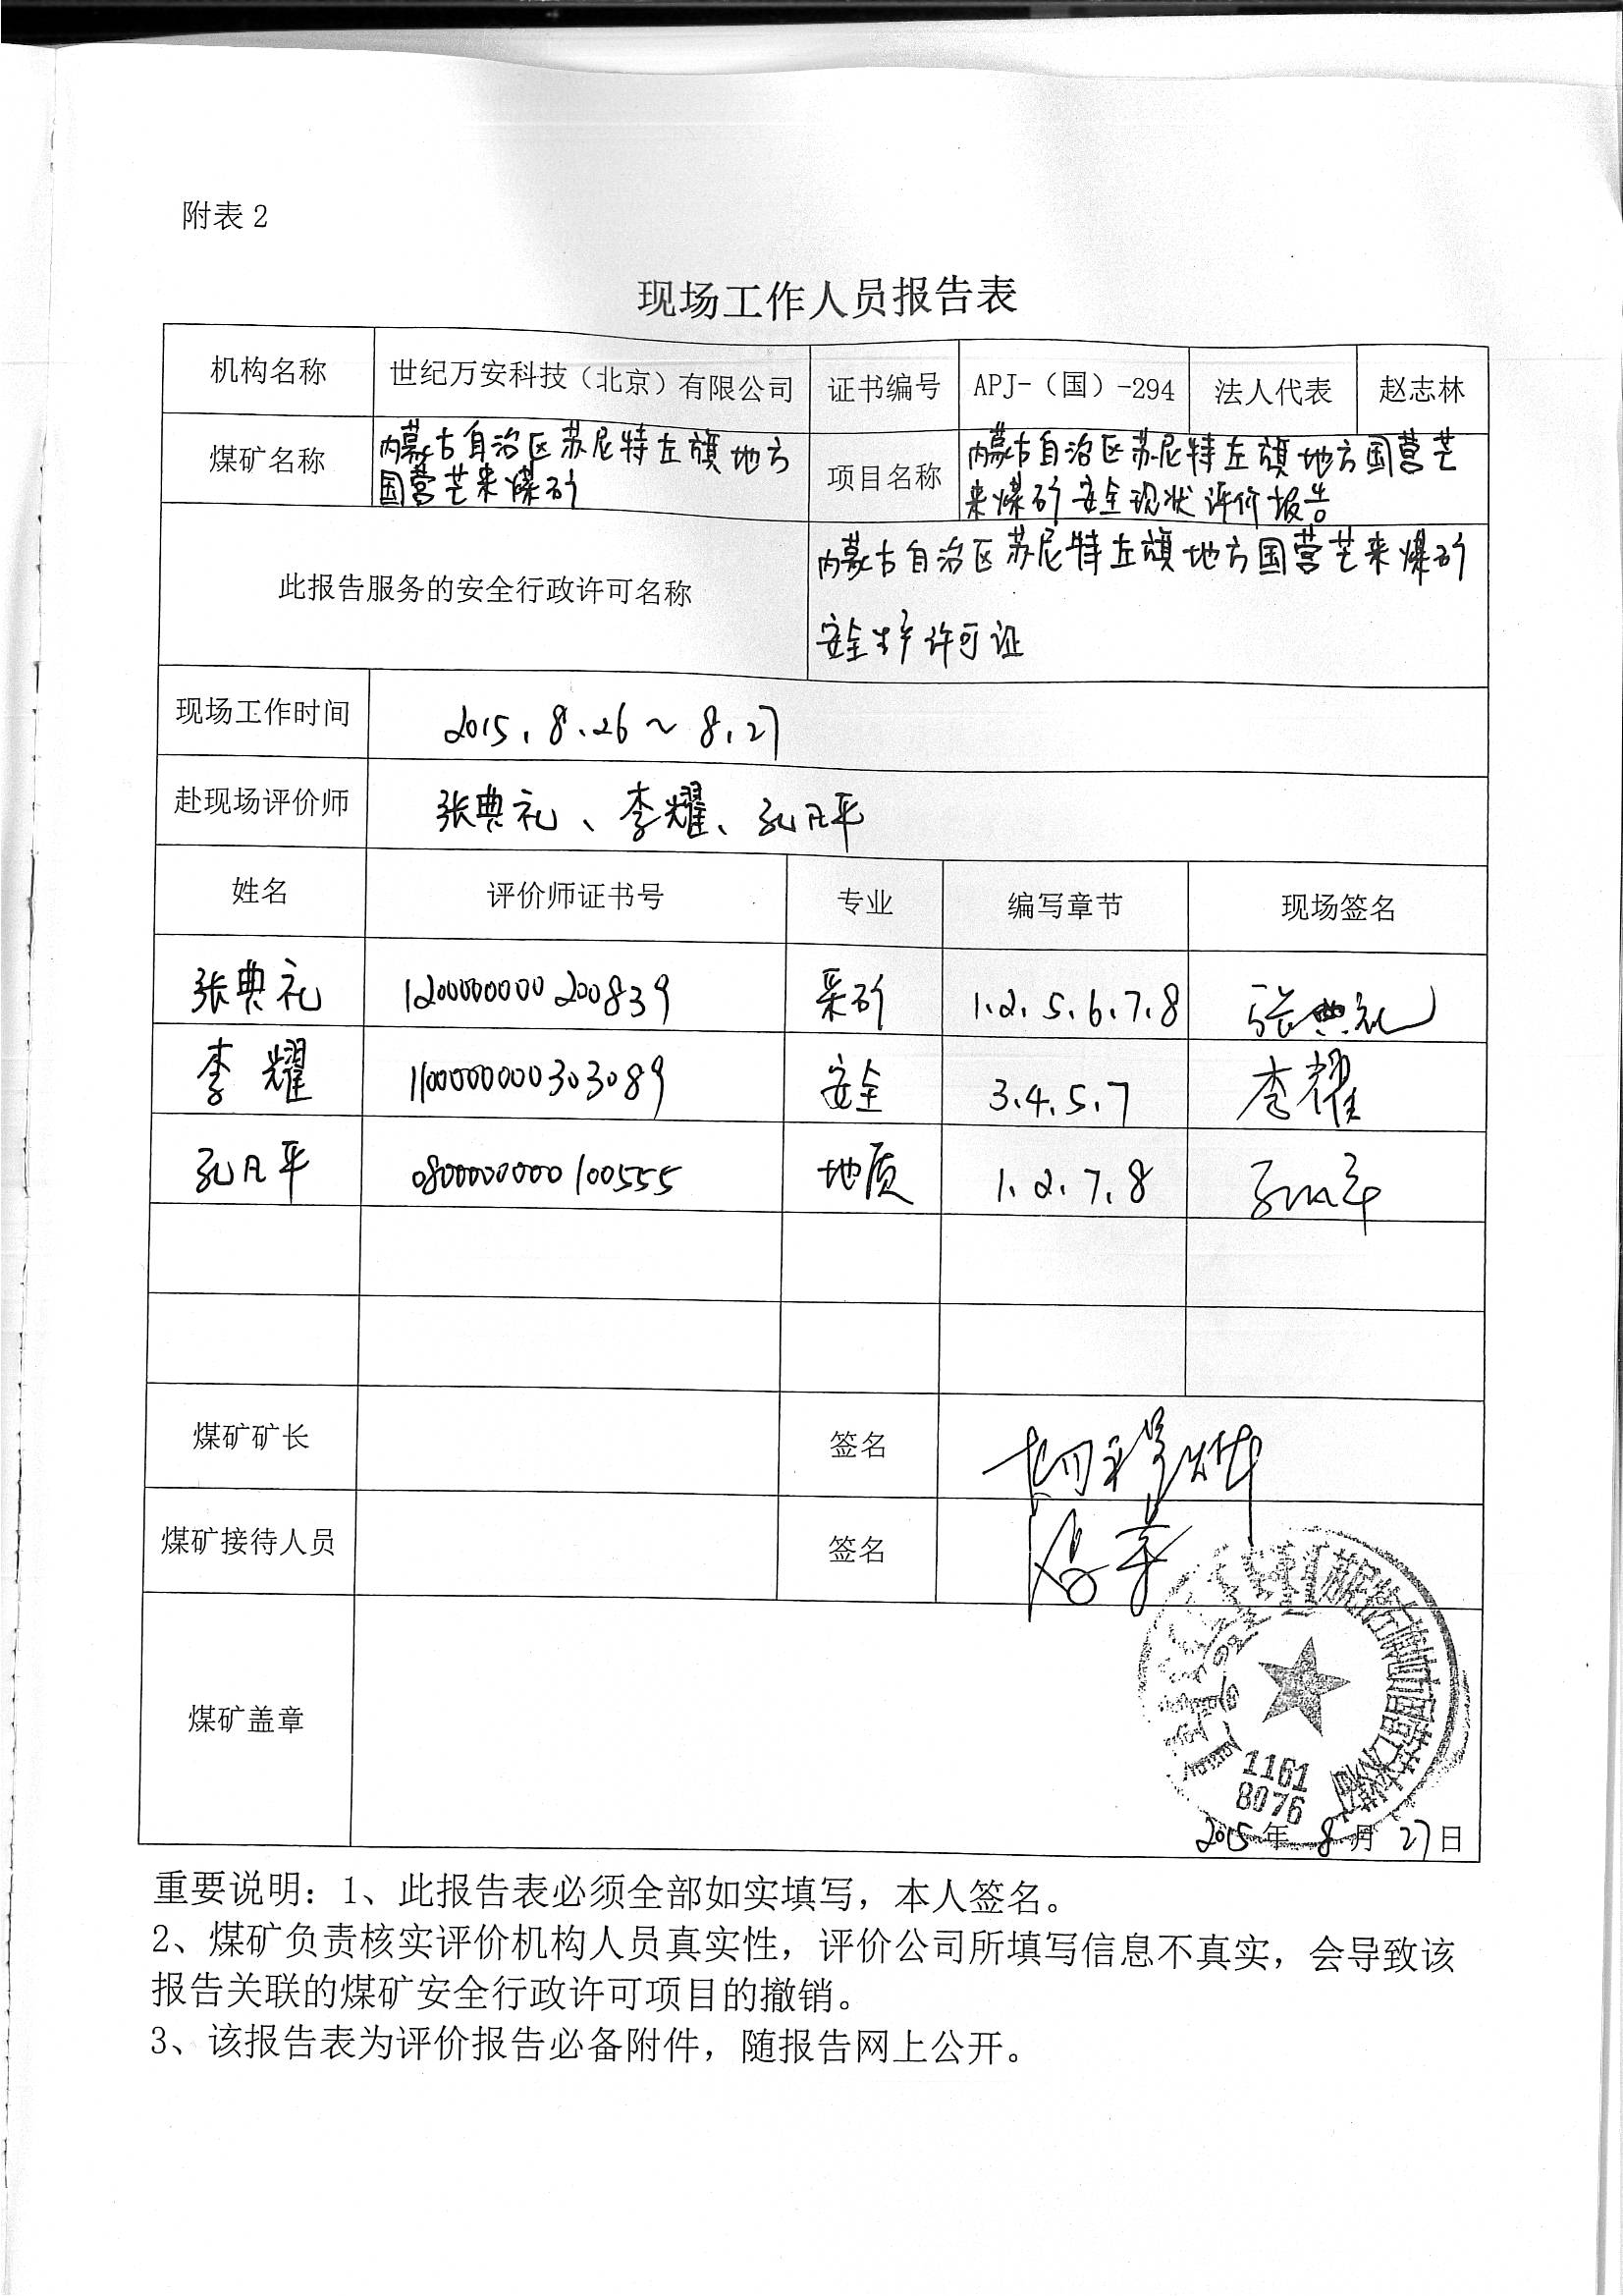 附表 2
现场工作人员报告表
机构名称 世纪万安科技（北京）有限公司 证书编号 APJ-（国）-294 法人代表 赵志林
煤矿名称 内蒙古自治区苏尼特左旗地方
国营芒来煤矿
项目名称 内蒙古自治区苏尼特左旗地方国营芒
来煤矿安全现状评价报告
此报告服务的安全行政许可名称 内蒙古自治区苏尼特左旗地方国营芒来煤矿
安全生产许可证
现场工作时间 2015.8.26～8.27
赴现场评价师 张典礼、李耀、孔凡平
姓名 评价师证书号 专业 编写章节 现场签名
张典礼 1200000000200839 采矿 1.2.5.6.7.8 张典礼
李耀 1100000000303089 安全 3.4.5.7 李耀
孔凡平 0800000000100555 地质 1.2.7.8 孔凡平
煤矿矿长 签名
煤矿接待人员 签名
煤矿盖章
苏尼特左旗地方国营芒来煤矿
1161
8076
2015年 8月 27日
重要说明：1、此报告表必须全部如实填写，本人签名。
2、煤矿负责核实评价机构人员真实性，评价公司所填写信息不真实，会导致该
报告关联的煤矿安全行政许可项目的撤销。
3、该报告表为评价报告必备附件，随报告网上公开。